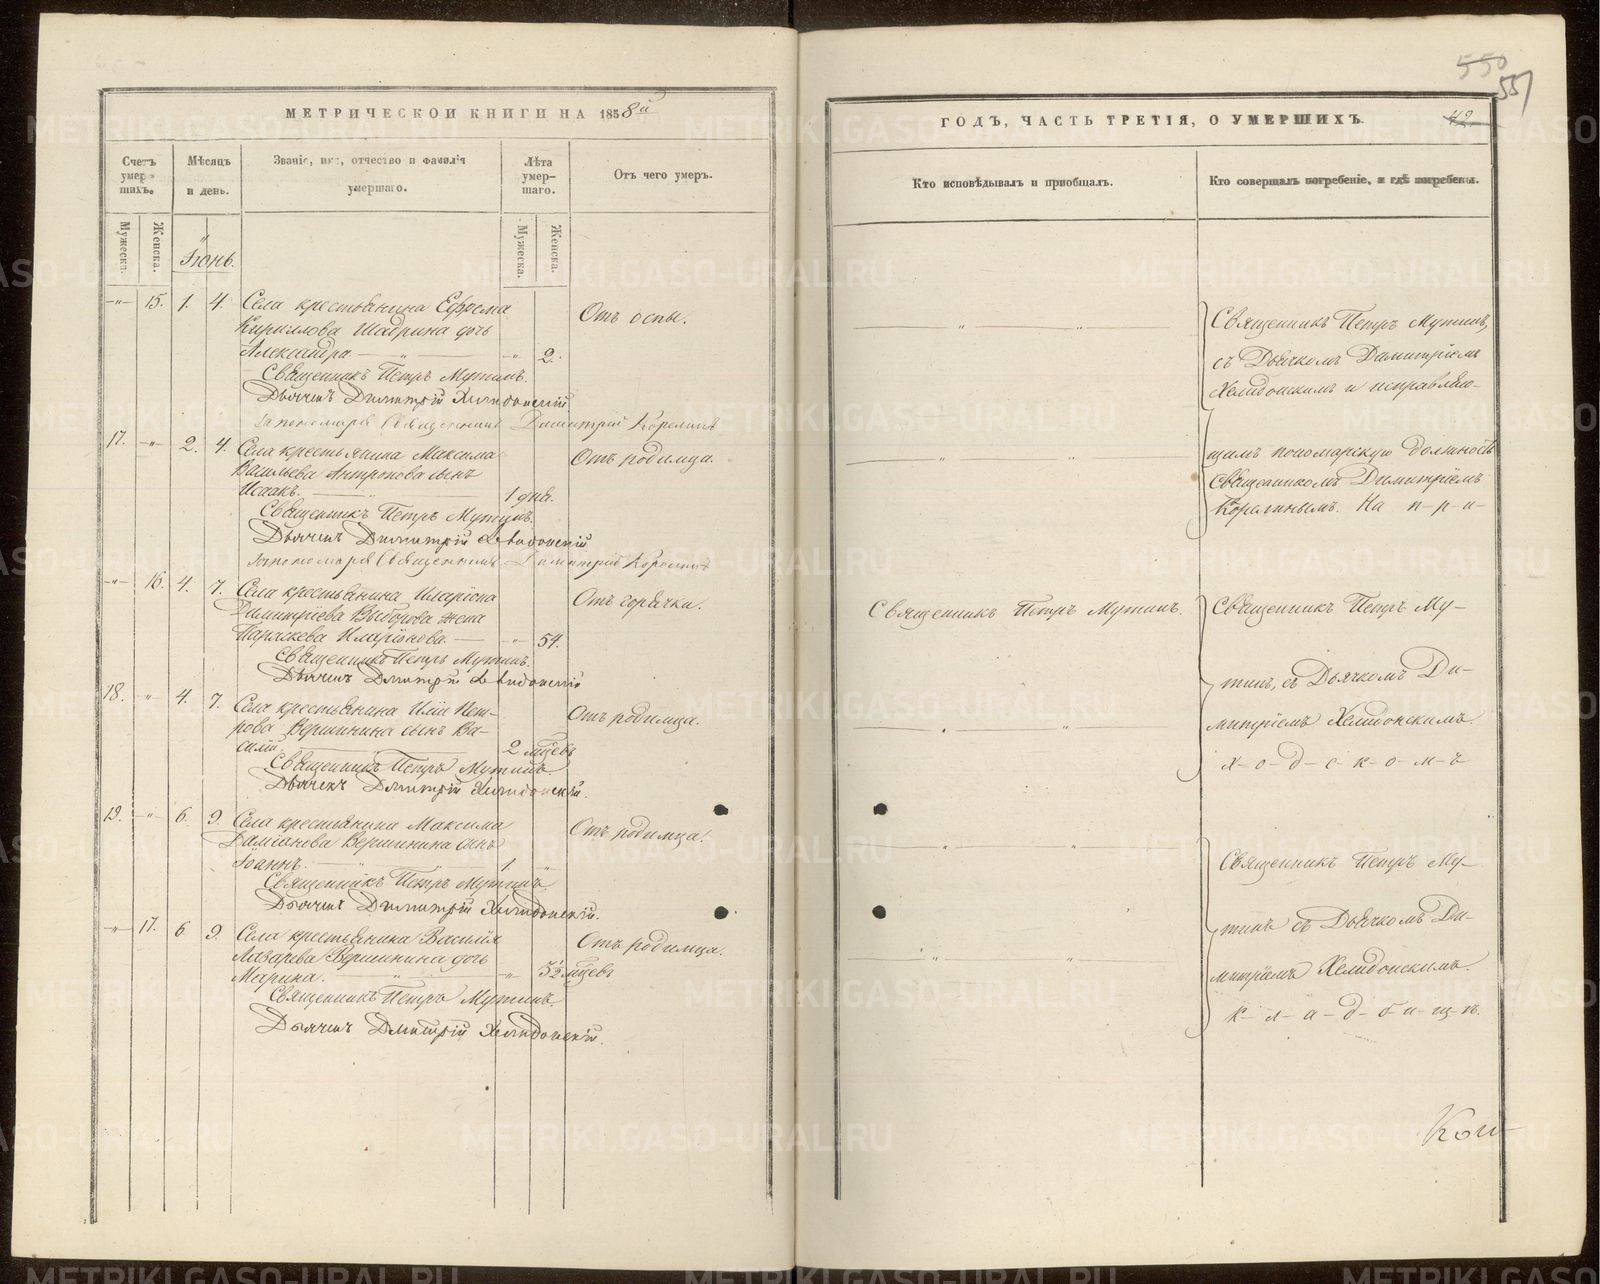 550
551
МЕТРИЧЕСКОЙ КНИГИ НА 1858й
ГОДЪ, ЧАСТЬ ТРЕТІЯ, О УМЕРШИХЪ.
42
Счетъ умершихъ.
Мѣсяцъ и день.
Званіе, имя, отчество и фамилія умершаго.
Лѣта умершаго.
Отъ чего умеръ.
Кто исповѣдывалъ и пріобщалъ.
Кто совершалъ погребеніе, и гдѣ погребены.
Мужеска.
Женска.
Мужеска.
Женска.
Іюнь.
-"- 15. 1. 4. Села крестьянина Ефрема
Кириллова Шадрина дочь
Александра — " — -"- 2.
Отъ оспы.
Священникъ Петръ Мутинъ.
Дьячекъ Димитрій Хелидонскій
За пономаря Священникъ Димитрій Корелинъ
17. -"- 2. 4. Села крестьянина Максима
Васильева Антропова сынъ
Исаакъ. — " — 1 дня.
Отъ родимца.
Священникъ Петръ Мутинъ.
Дьячекъ Димитрій Хелидонскій
За пономаря Священникъ Димитрій Корелинъ
-"- 16. 4. 7. Села крестьянина Иларіона
Димитріева Выборова жена
Параскева Иларіонова. — -"- 54.
Отъ горячки.
Священникъ Петръ Мутинъ.
Дьячекъ Дмитрій Хелидонскій
18. -"- 4. 7. Села крестьянина Иліи Пет-
рова Вершинина сынъ Ва-
силій — 2 мцевъ
Отъ родимца.
Священникъ Петръ Мутинъ
Дьячекъ Дмитрій Хелидонскій.
19. -"- 6. 9. Села крестьянина Максима
Даміанова Вершинина сынъ
Іоаннъ. — " — 1. "
Отъ родимца.
Священникъ Петръ Мутинъ
Дьячекъ Димитрій Хелидонскій.
-"- 17. 6 9. Села крестьянина Василія
Лазарева Вершинина дочь
Марина. — " — -"- 5½ мцевъ
Отъ родимца.
Священникъ Петръ Мутинъ.
Дьячекъ Дмитрій Хелидонскій.
Священникъ Петръ Мутинъ.
Священникъ Петръ Мутинъ,
съ Дьячкомъ Димитріемъ
Хелидонскимъ и исправляю-
щимъ пономарскую должность
Священникомъ Димитріемъ
Корелинымъ. На п-р-и-
Священникъ Петръ Му-
тинъ, съ Дьячкомъ Ди-
митріемъ Хелидонскимъ.
х-о-д-с-к-о-м-ъ
Священникъ Петръ Му-
тинъ съ Дьячкомъ Ди-
митріемъ Хелидонскимъ.
к-л-а-д-б-и-щѣ.
METRIKI.GASO-URAL.RU